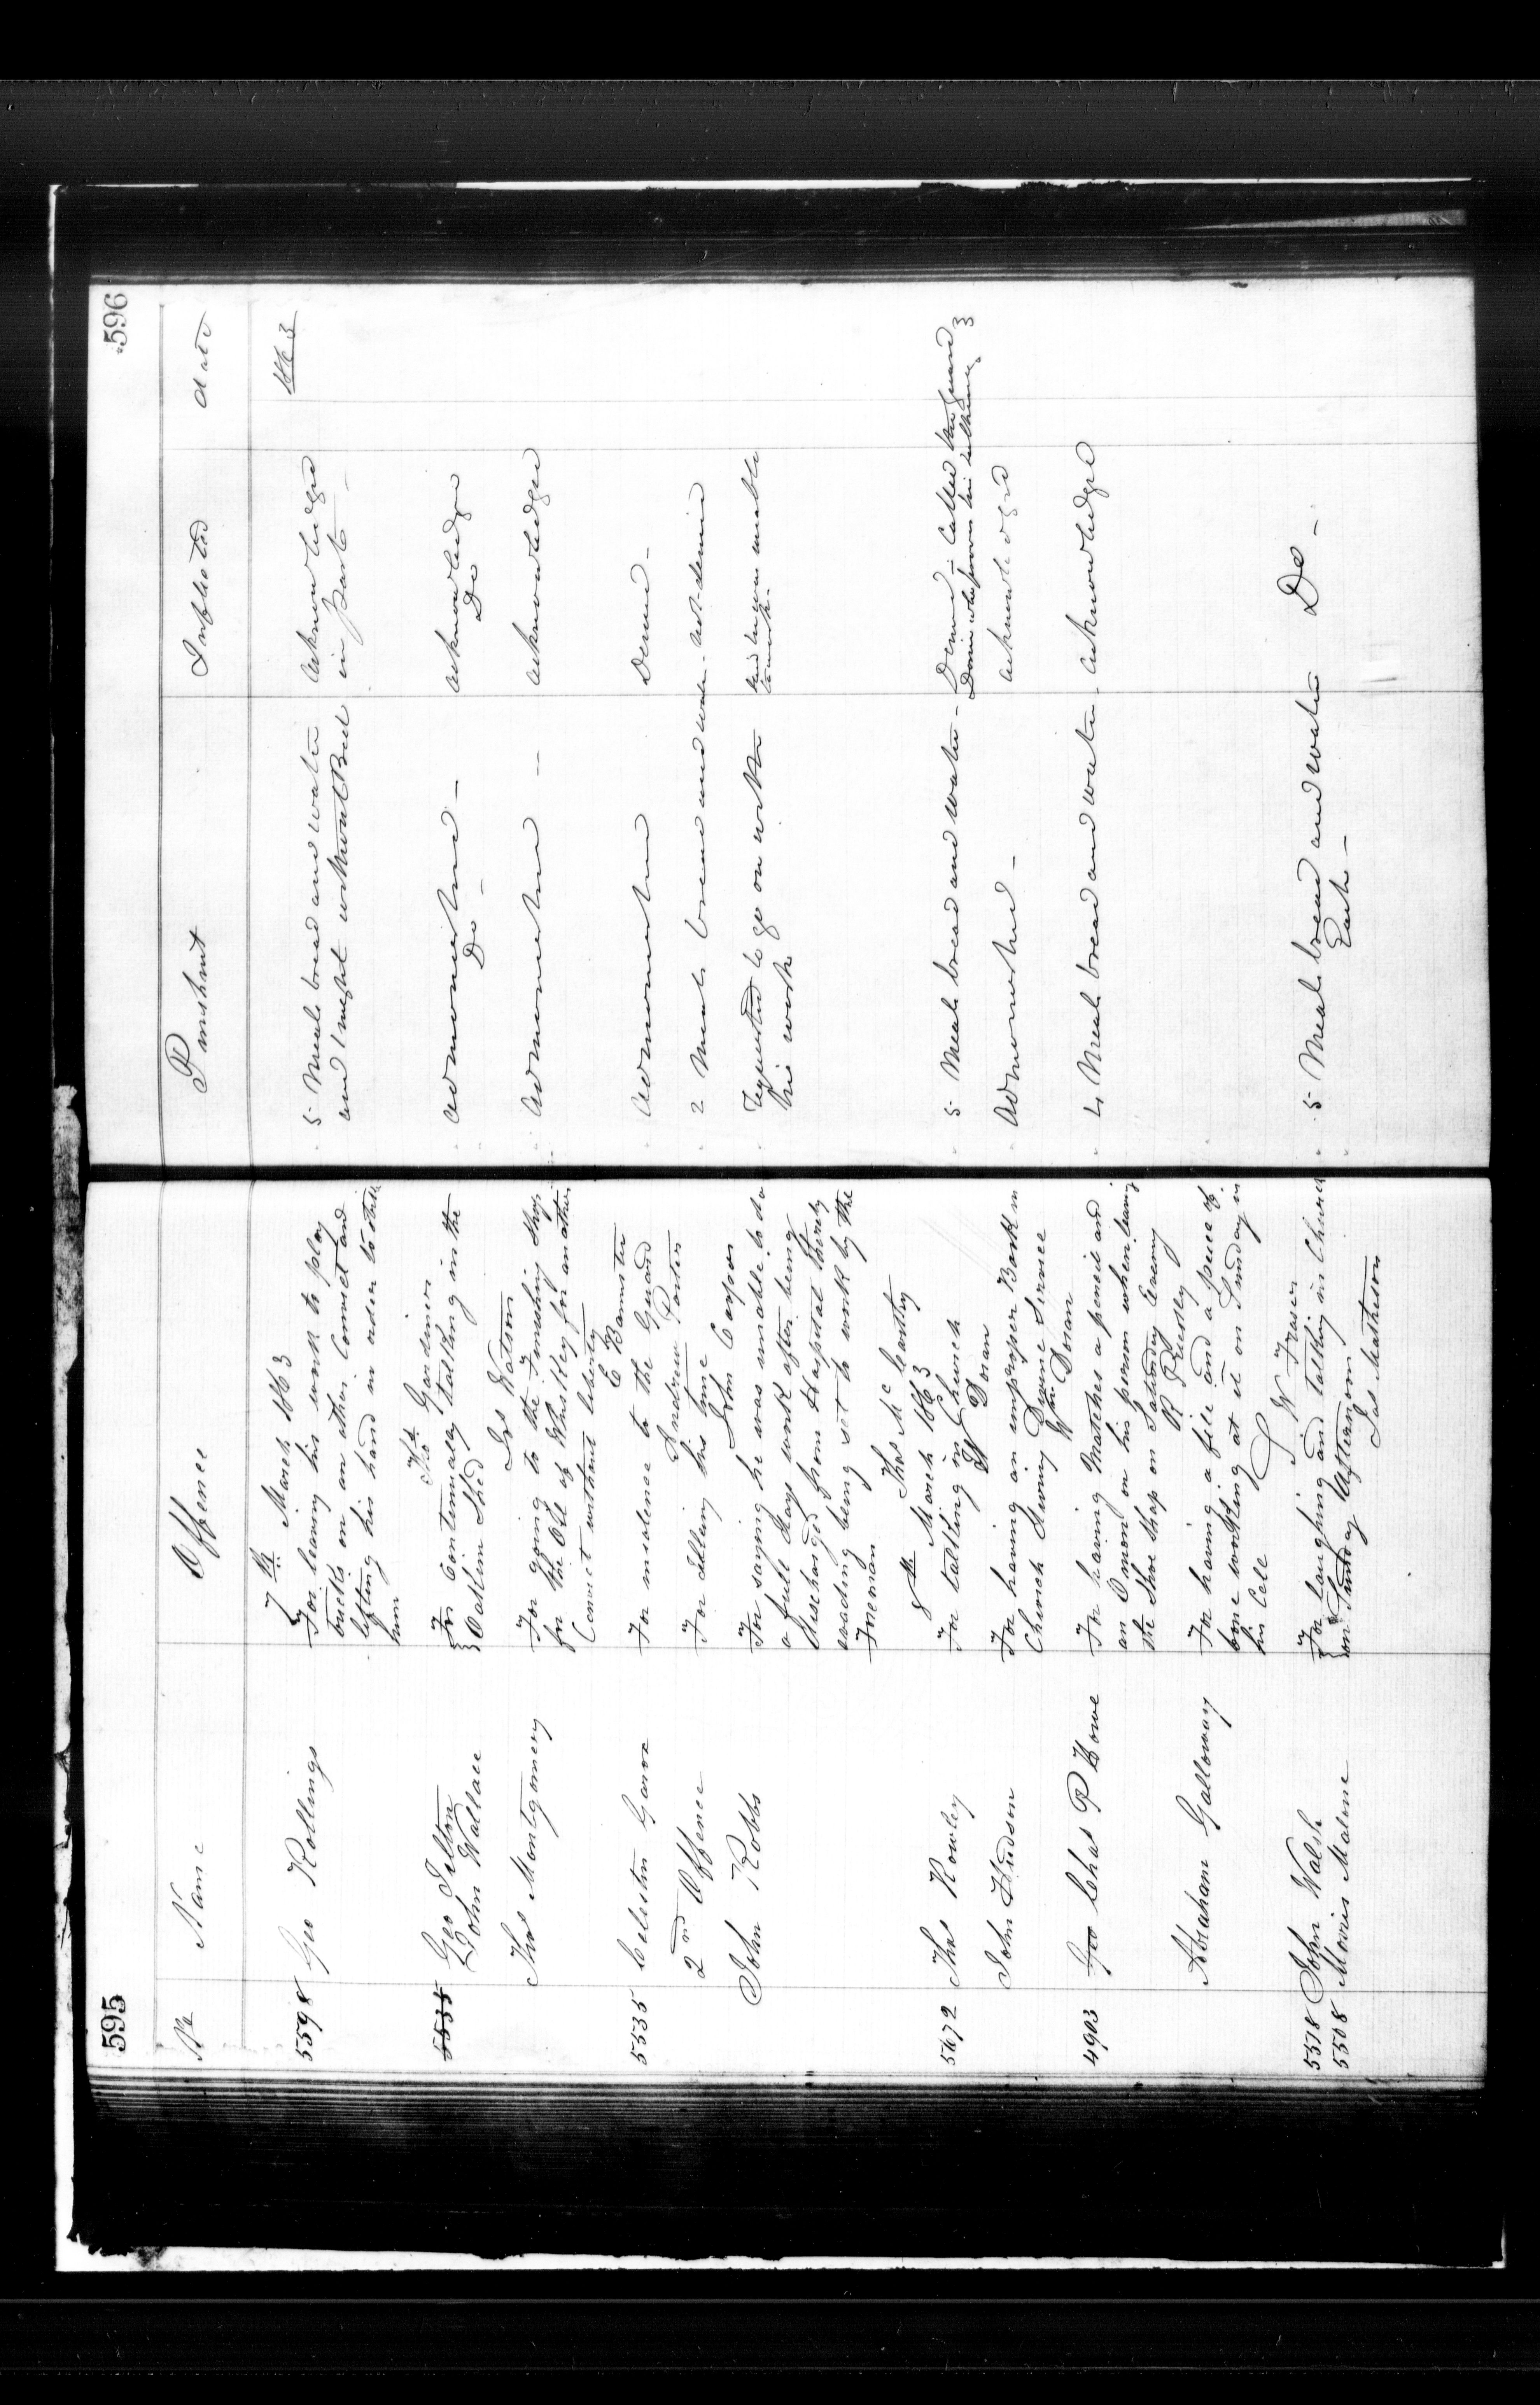 595
No Name Offence
7th March 1863
5598 Geo Rollings For leaving his work to play
tricks on an other Convict and
lifting his hand in order to strike
him
Thos Gardiner
5535 Geo Tilton For Continualy talking in the
John Wallace Oakum Shed
Jas Watson
Thos Montgomery For going to the Finishing Shop
for the of Whiskey for another
Convict without liberty
E Bannister
5535 Celestin For insolence to the Guard
Andrew Porter
2nd Offence For Idleing his time
John Cooper
John Robbs For saying he was unable to do
a full days work after being
discharged from Hospital thereby
evading being set to work by the
Foreman
Thos McCarthy
8th March 1863
5672 Thos Rowley For talking in Church
W Doran
John Hudson For having an improper Book in
Church during Divine Service
Wm Doran
4903 Geo Chas P Howe For having Matches a pencil and
an on his person when leaving
the Shoe Shop on Saturday Evening
R Priestley
Abraham Galloway For having a file and a piece of
bone working at it on Sunday in
his Cell
W Fraser
5578 John Walsh For laughing and talking in Church
5508 Morris Malone on Sunday Afternoon
Jas Matheson
596
Punishmt Inflicted date
1863
5 Meals bread and water Acknowledged
and 1 night without Bed in part
admonished - acknowledged
Do - Do
Admonished - acknowledged
Admonished Denied -
2 Meals bread and water - not denied
requested to go on with said he was unable
his work to work -
5 Meals bread and water - Denied - Called the Guard 3
Doran who proves his
Admonished - acknowledged
4 Meals bread and water - acknowledged
5 Meals bread and water Do -
Each -